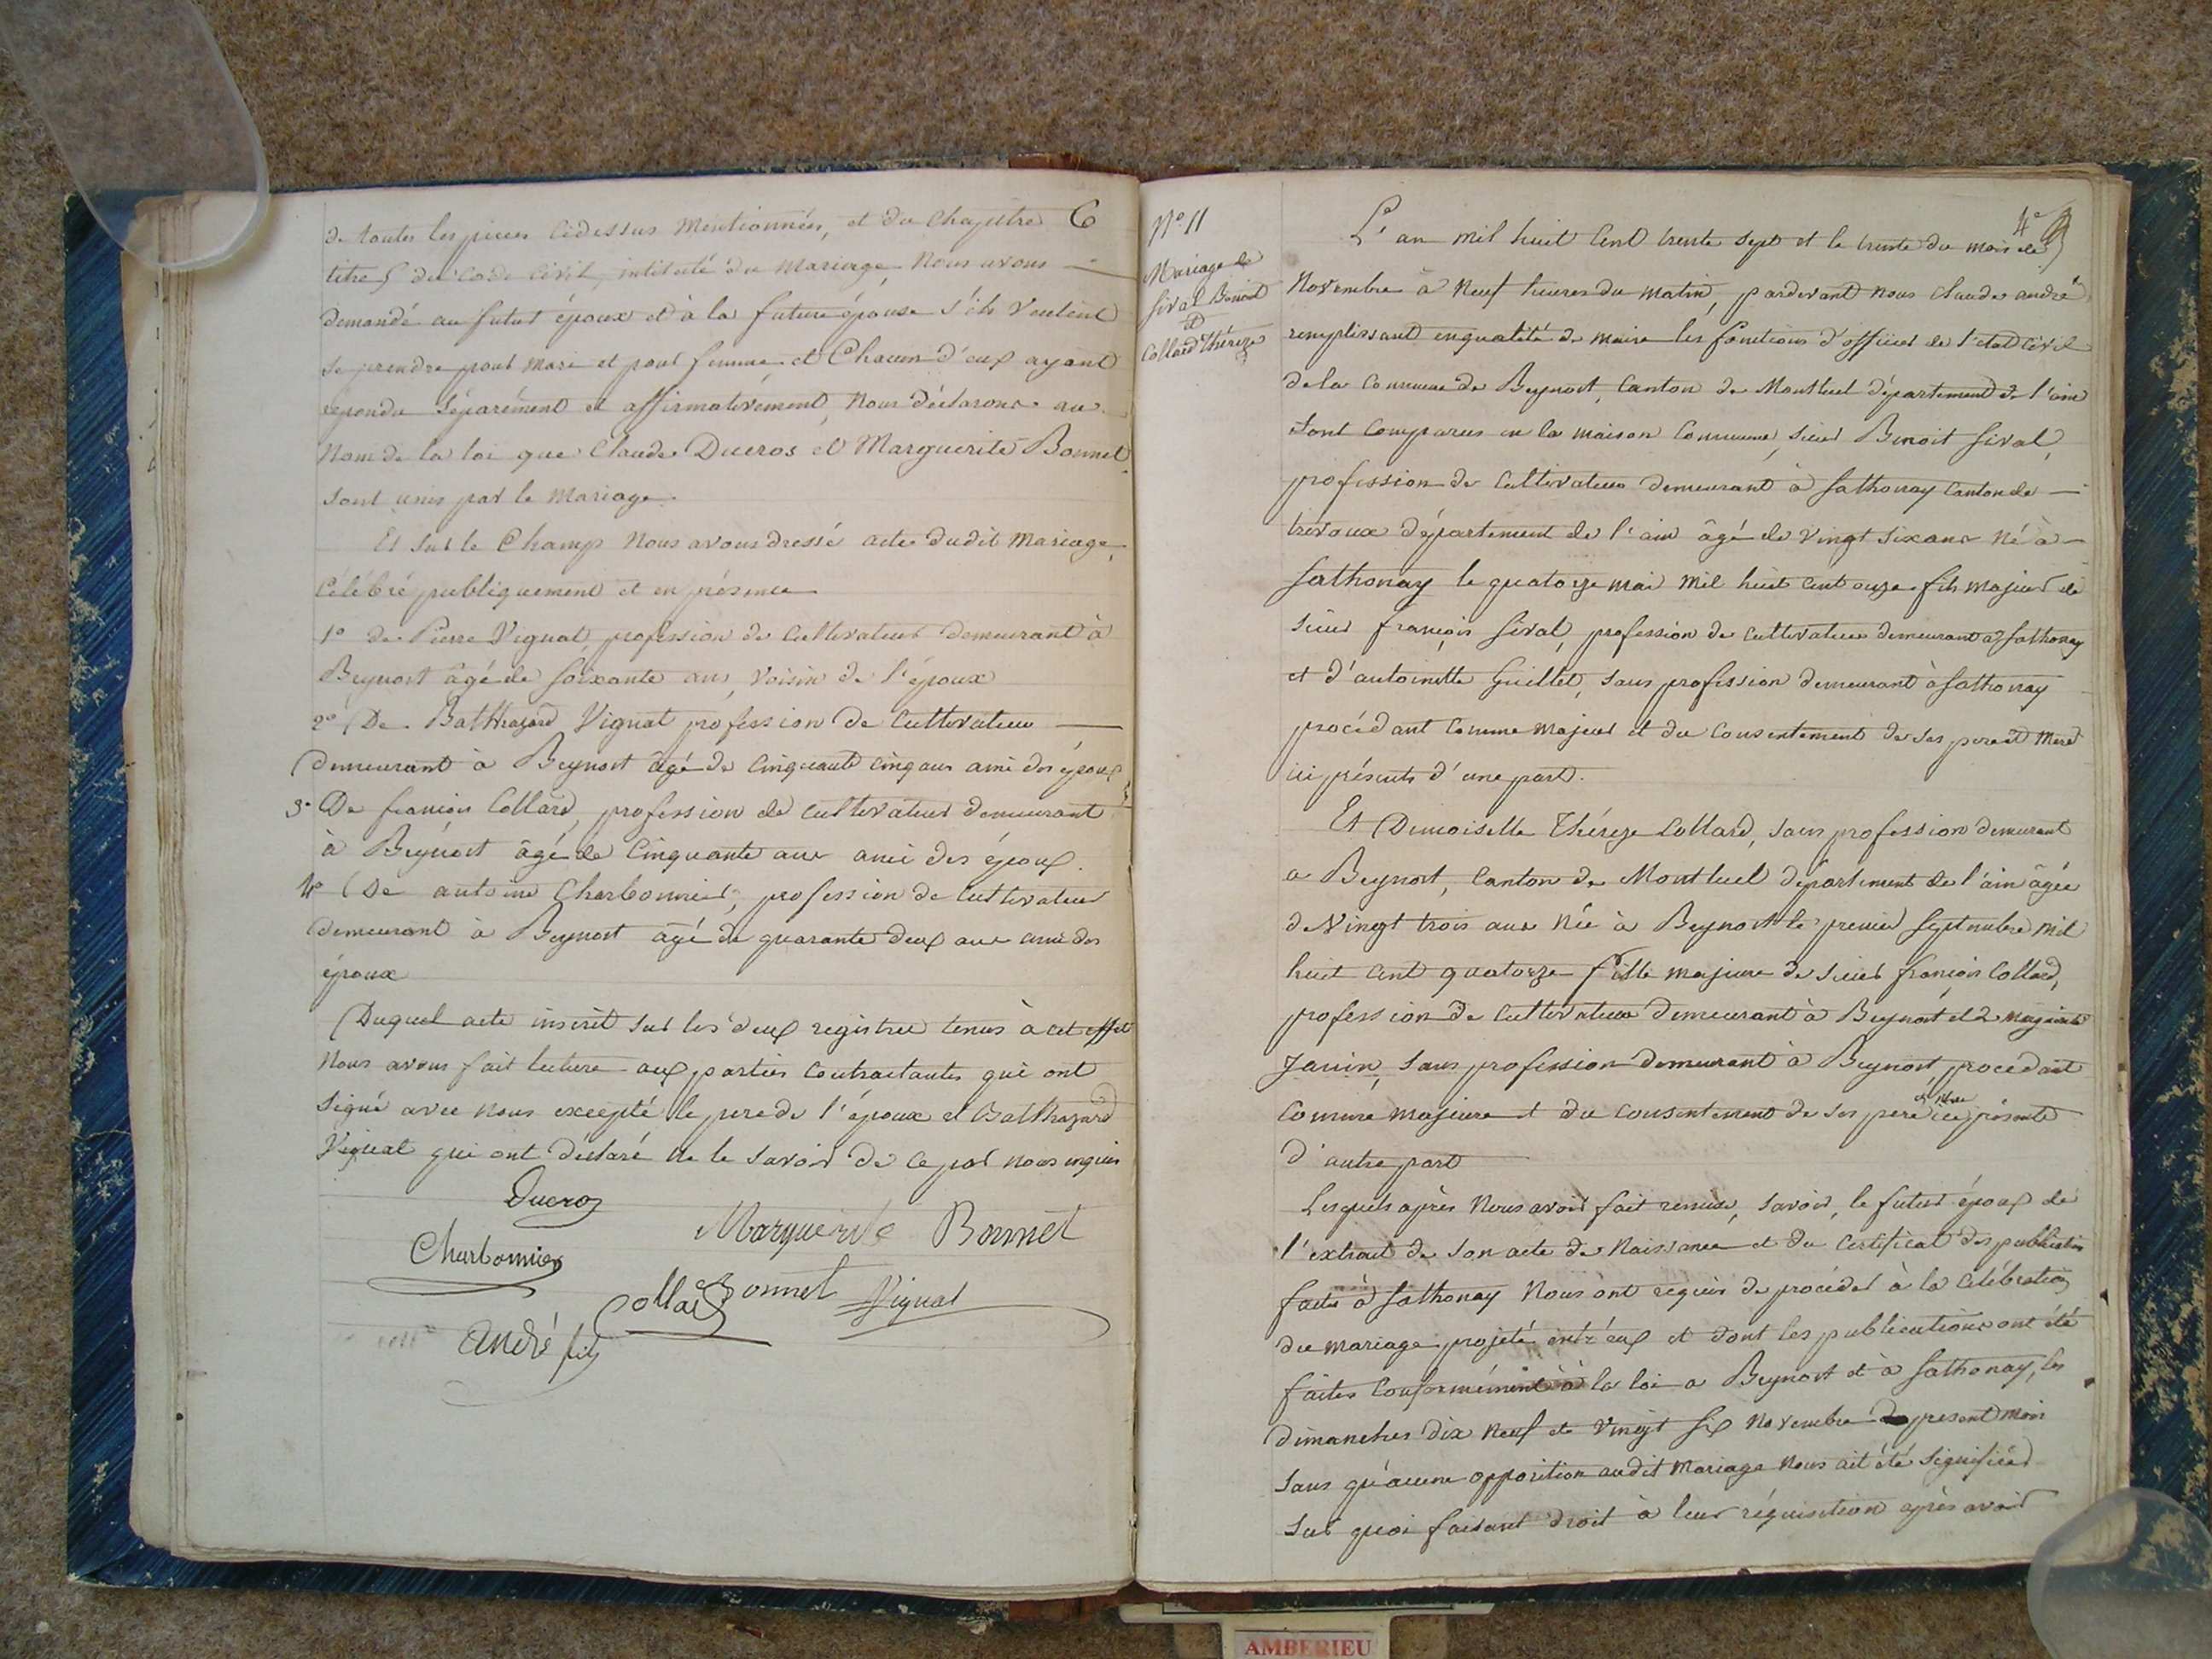 de toutes les pieces cidessus mentionnées, et du chapitre 6
titre 5 du code civil, intitulé du mariage, nous avons
demandé au futur époux et à la future épouse s'ils veulent
se prendre pour mari et pour femme et chacun d'eux ayant
repondu séparément et affirmativement, nous déclarons au
nom de la loi que Claude Ducros et Marguerite Bonnet
sont unis par le mariage.
Et sur le champ nous avons dressé acte dudit mariage,
célébré publiquement et en présence
1° de Pierre Vignat, profession de cultivateur demeurant à
Beynost âgé de soixante ans, voisin de l'époux
2° De Balthazard Vignat profession de cultivateur
demeurant à Beynost âgé de cinquante cinq ans ami des époux
3° De françois Collard, profession de cultivateur demeurant
à Beynost âgé de cinquante ans ami des époux.
4° De antoine Charbonnier, profession de cultivateur
demeurant à Beynost âgé de quarante deux ans ami des
époux
Duquel acte inscrit sur les deux registres tenus à cet effet
nous avons fait lecture aux parties contractantes qui ont
signé avec nous excepté le pere de l'époux et Balthazard
Vignat qui ont déclaré ne le savoir de ce par nous enquis
Ducros
Marguerite Bonnet
Charbonnier
Collard Bonnet Vignat
André fils
N° 11
Mariage de
Sival Benoit
et
Collard Thérèze
4e
L'an mil huit cent trente sept et le trente du mois de
Novembre à neuf heures du matin, pardevant nous Claude andré
remplissant en qualité de maire les fonctions d'officier de l'état civil
de la commune de Beynost, canton de Montluel département de l'ain
sont comparus en la maison commune, sieur Benoit Sival,
profession de cultivateur demeurant à Sathonay canton de
trévoux département de l'ain âgé de vingt six ans né à
Sathonay le quatorze mai mil huit cent onze fils majeur de
sieur françois Sival, profession de cultivateur demeurant à Sathonay
et d'antoinette Guillet, sans profession demeurant à Sathonay
procédant comme majeur et du consentement de ses pere et mere
ici présents d'une part.
Et Demoiselle Thérèze Collard, sans profession demeurant
a Beynost, canton de Montluel département de l'ain âgée
de vingt trois ans née à Beynost le premier septembre mil
huit cent quatorze fille majeure de sieur françois Collard,
profession de cultivateur demeurant à Beynost et de
Janin, sans profession demeurant à Beynost, procédant
comme majeure et du consentement de ses pere et mere ici présents
d'autre part
Lesquels après nous avoir fait remise, savoir, le futur époux de
l'extrait de son acte de naissance et du certificat des publications
faites à Sathonay nous ont requis de procéder à la célébration
du mariage projeté entr'eux et dont les publications ont été
faites conformément à la loi a Beynost et à Sathonay, les
dimanches dix neuf et vingt six novembre present mois
sans qu'aucune opposition audit mariage nous ait été signifiée
sur quoi faisant droit à leur réquisition après avoir
AMBERIEU